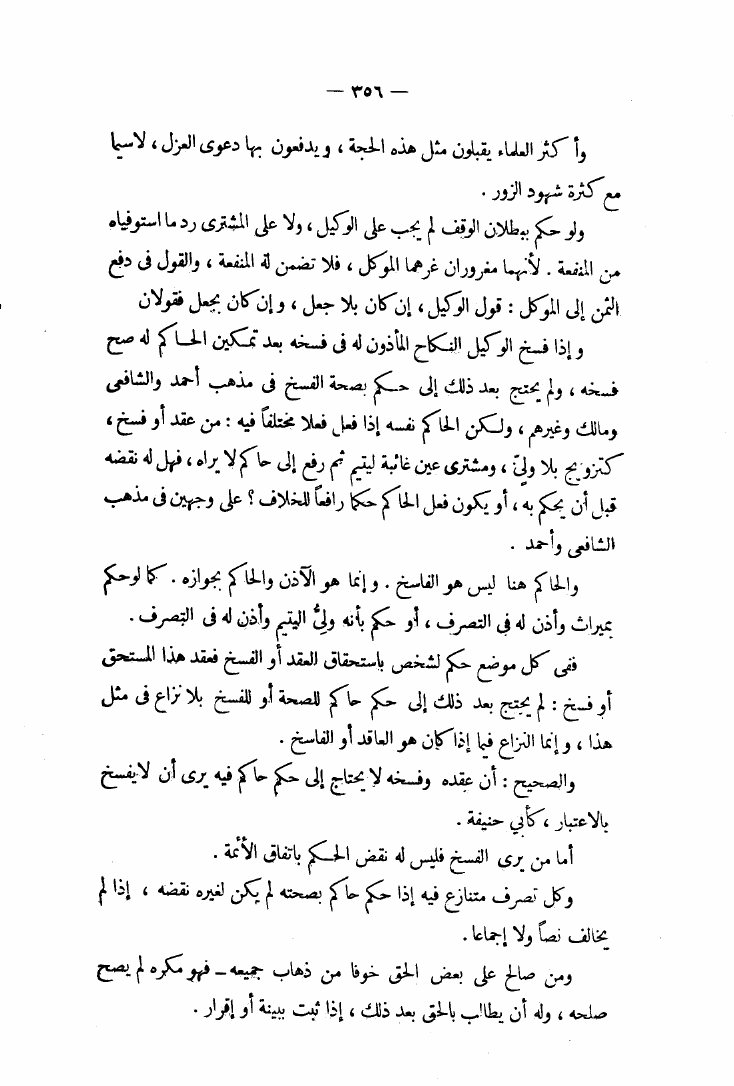 — ٣٥٦ —
وأكثر العلماء يقبلون مثل هذه الحجة ، ويدفعون بها دعوى العزل ، لاسيما
مع كثرة شهود الزور .
ولو حكم ببطلان الوقف لم يجب على الوكيل ، ولا على المشترى رد ما استوفياه
من المنفعة . لأنهما مغروران غرهما الموكل ، فلا تضمن له المنفعة ، والقول فى دفع
الثمن إلى الموكل : قول الوكيل ، إن كان بلا جعل ، وإن كان بجعل فقولان
وإذا فسخ الوكيل النكاح المأذون له فى فسخه بعد تمكين الحاكم له صح
فسخه ، ولم يحتج بعد ذلك إلى حكم بصحة الفسخ فى مذهب أحمد والشافعى
ومالك وغيرهم ، ولكن الحاكم نفسه إذا فعل فعلا مختلفاً فيه : من عقد أو فسخ ،
كتزويج بلا ولىّ ، ومشترى عين غائبة ليتيم ثم رفع إلى حاكم لا يراه ، فهل له نقضه
قبل أن يحكم به ، أو يكون فعل الحاكم حكما رافعاً للخلاف ؟ على وجهين فى مذهب
الشافعى وأحمد .
والحاكم هنا ليس هو الفاسخ . وإنما هو الآذن والحاكم بجوازه . كما لوحكم
بميراث وأذن له فى التصرف ، أو حكم بأنه ولىُّ اليتيم وأذن له فى التصرف .
ففى كل موضع حكم لشخص باستحقاق العقد أو الفسخ فعقد هذا المستحق
أو فسخ : لم يحتج بعد ذلك إلى حكم حاكم للصحة أو للفسخ بلا نزاع فى مثل
هذا ، وإنما النزاع فيما إذا كان هو العاقد أو الفاسخ .
والصحيح : أن عقده وفسخه لا يحتاج إلى حكم حاكم فيه يرى أن لا يفسخ
بالاعتبار ، كأبي حنيفة .
أما من يرى الفسخ فليس له نقض الحكم باتفاق الأئمة .
وكل تصرف متنازع فيه إذا حكم حاكم بصحته لم يكن لغيره نقضه ، إذا لم
يخالف نصاً ولا إجماعا .
ومن صالح على بعض الحق خوفا من ذهاب جميعه ــ فهو مكره لم يصح
صلحه ، وله أن يطالب بالحق بعد ذلك ، إذا ثبت ببينة أو إقرار .